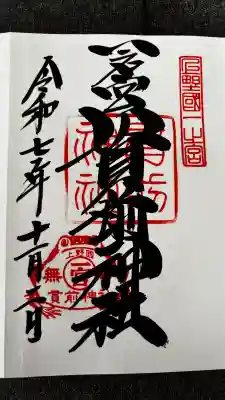 上野國一之宮
貫前神社
令和七年十一月日
上野國
一宮
貫前神社